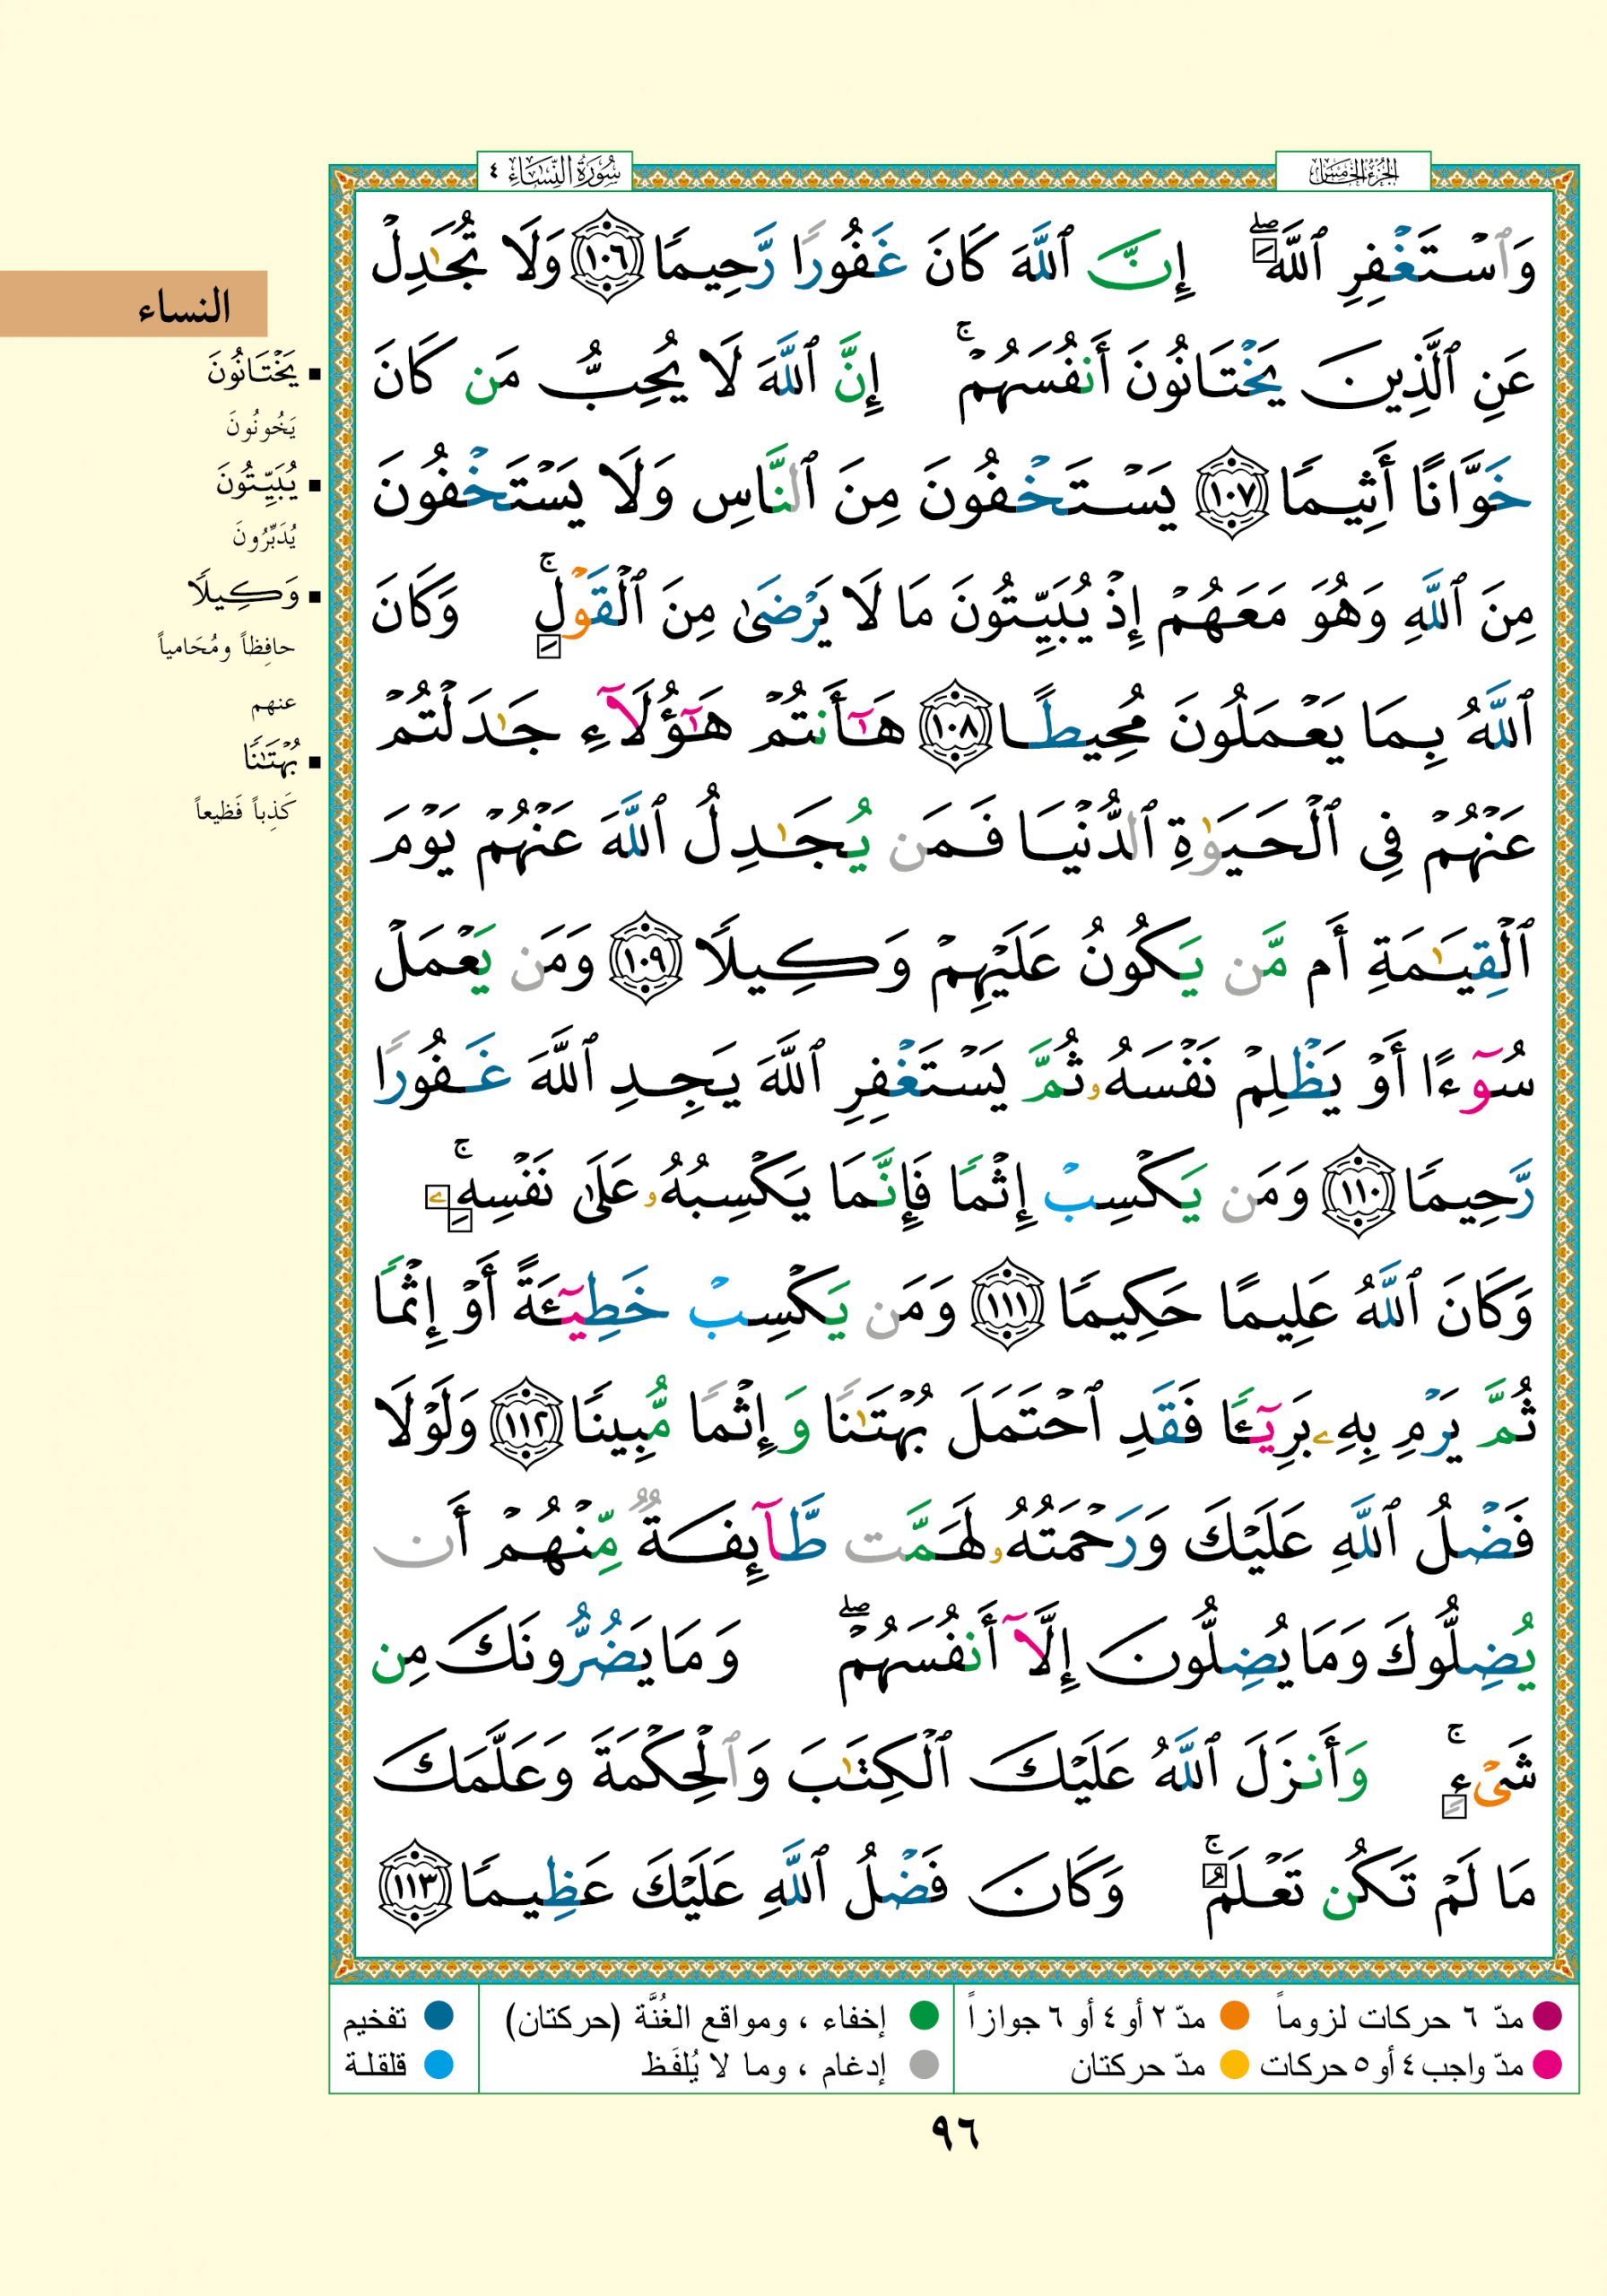 الجزء الخامس
سورة النساء ٤
وَٱسْتَغْفِرِ ٱللَّهَۖ إِنَّ ٱللَّهَ كَانَ غَفُورًا رَّحِيمًا ١٠٦ وَلَا تُجَٰدِلْ
عَنِ ٱلَّذِينَ يَخْتَانُونَ أَنفُسَهُمْۚ إِنَّ ٱللَّهَ لَا يُحِبُّ مَن كَانَ
خَوَّانًا أَثِيمًا ١٠٧ يَسْتَخْفُونَ مِنَ ٱلنَّاسِ وَلَا يَسْتَخْفُونَ
مِنَ ٱللَّهِ وَهُوَ مَعَهُمْ إِذْ يُبَيِّتُونَ مَا لَا يَرْضَىٰ مِنَ ٱلْقَوْلِۚ وَكَانَ
ٱللَّهُ بِمَا يَعْمَلُونَ مُحِيطًا ١٠٨ هَٰٓأَنتُمْ هَٰٓؤُلَآءِ جَٰدَلْتُمْ
عَنْهُمْ فِى ٱلْحَيَوٰةِ ٱلدُّنْيَا فَمَن يُجَٰدِلُ ٱللَّهَ عَنْهُمْ يَوْمَ
ٱلْقِيَٰمَةِ أَم مَّن يَكُونُ عَلَيْهِمْ وَكِيلًا ١٠٩ وَمَن يَعْمَلْ
سُوٓءًا أَوْ يَظْلِمْ نَفْسَهُۥ ثُمَّ يَسْتَغْفِرِ ٱللَّهَ يَجِدِ ٱللَّهَ غَفُورًا
رَّحِيمًا ١١٠ وَمَن يَكْسِبْ إِثْمًا فَإِنَّمَا يَكْسِبُهُۥ عَلَىٰ نَفْسِهِۦۚ
وَكَانَ ٱللَّهُ عَلِيمًا حَكِيمًا ١١١ وَمَن يَكْسِبْ خَطِيٓـَٔةً أَوْ إِثْمًا
ثُمَّ يَرْمِ بِهِۦ بَرِيٓـًٔا فَقَدِ ٱحْتَمَلَ بُهْتَٰنًا وَإِثْمًا مُّبِينًا ١١٢ وَلَوْلَا
فَضْلُ ٱللَّهِ عَلَيْكَ وَرَحْمَتُهُۥ لَهَمَّت طَّآئِفَةٌ مِّنْهُمْ أَن
يُضِلُّوكَ وَمَا يُضِلُّونَ إِلَّآ أَنفُسَهُمْۖ وَمَا يَضُرُّونَكَ مِن
شَىْءٍۚ وَأَنزَلَ ٱللَّهُ عَلَيْكَ ٱلْكِتَٰبَ وَٱلْحِكْمَةَ وَعَلَّمَكَ
مَا لَمْ تَكُن تَعْلَمُۚ وَكَانَ فَضْلُ ٱللَّهِ عَلَيْكَ عَظِيمًا ١١٣
النساء
▪ يَخْتَانُونَ
يَخُونُونَ
▪ يُبَيِّتُونَ
يُدَبِّرُونَ
▪ وَكِيلًا
حافِظاً ومُحَامياً
عنهم
▪ بُهْتَٰنًا
كَذِباً فَظيعاً
مدّ ٦ حركات لزوماً ● مدّ ٢ أو ٤ أو ٦ جوازاً ● إخفاء ، ومواقع الغُنَّة (حركتان) ● تفخيم
مدّ واجب ٤ أو ٥ حركات ● مدّ حركتان ● إدغام ، وما لا يُلفَظ ● قلقلة
٩٦